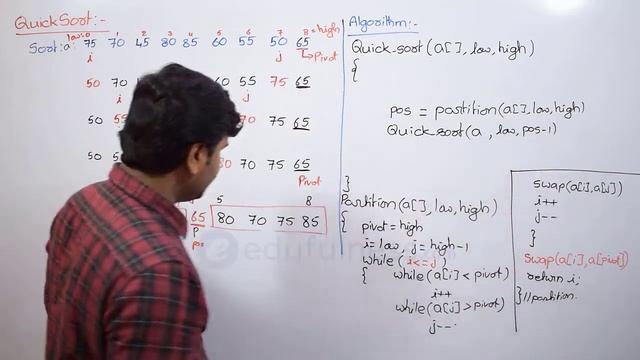 QuickSort:-
low=0 1 2 3 4 5 6 7 8=high
Sort: a: 75 70 45 80 85 60 55 50 65
i j Pivot
50 70 60 55 75 65
i j
50 55 70 75 65
50 70 75 65
Pivot
5 8
65 80 70 75 85
P
pos
Algorithm:-
Quick-sort(a[], low, high)
{
pos = partition(a[], low, high)
Quick-sort(a, low, pos-1)
}
Partition(a[], low, high)
{ pivot = high
i = low, j = high-1
while (i<=j)
{ while(a[i] < pivot)
i++
while(a[j] > pivot)
j--
swap(a[i], a[j])
i++
j--
}
swap(a[i], a[pivot])
return i;
} //partition.